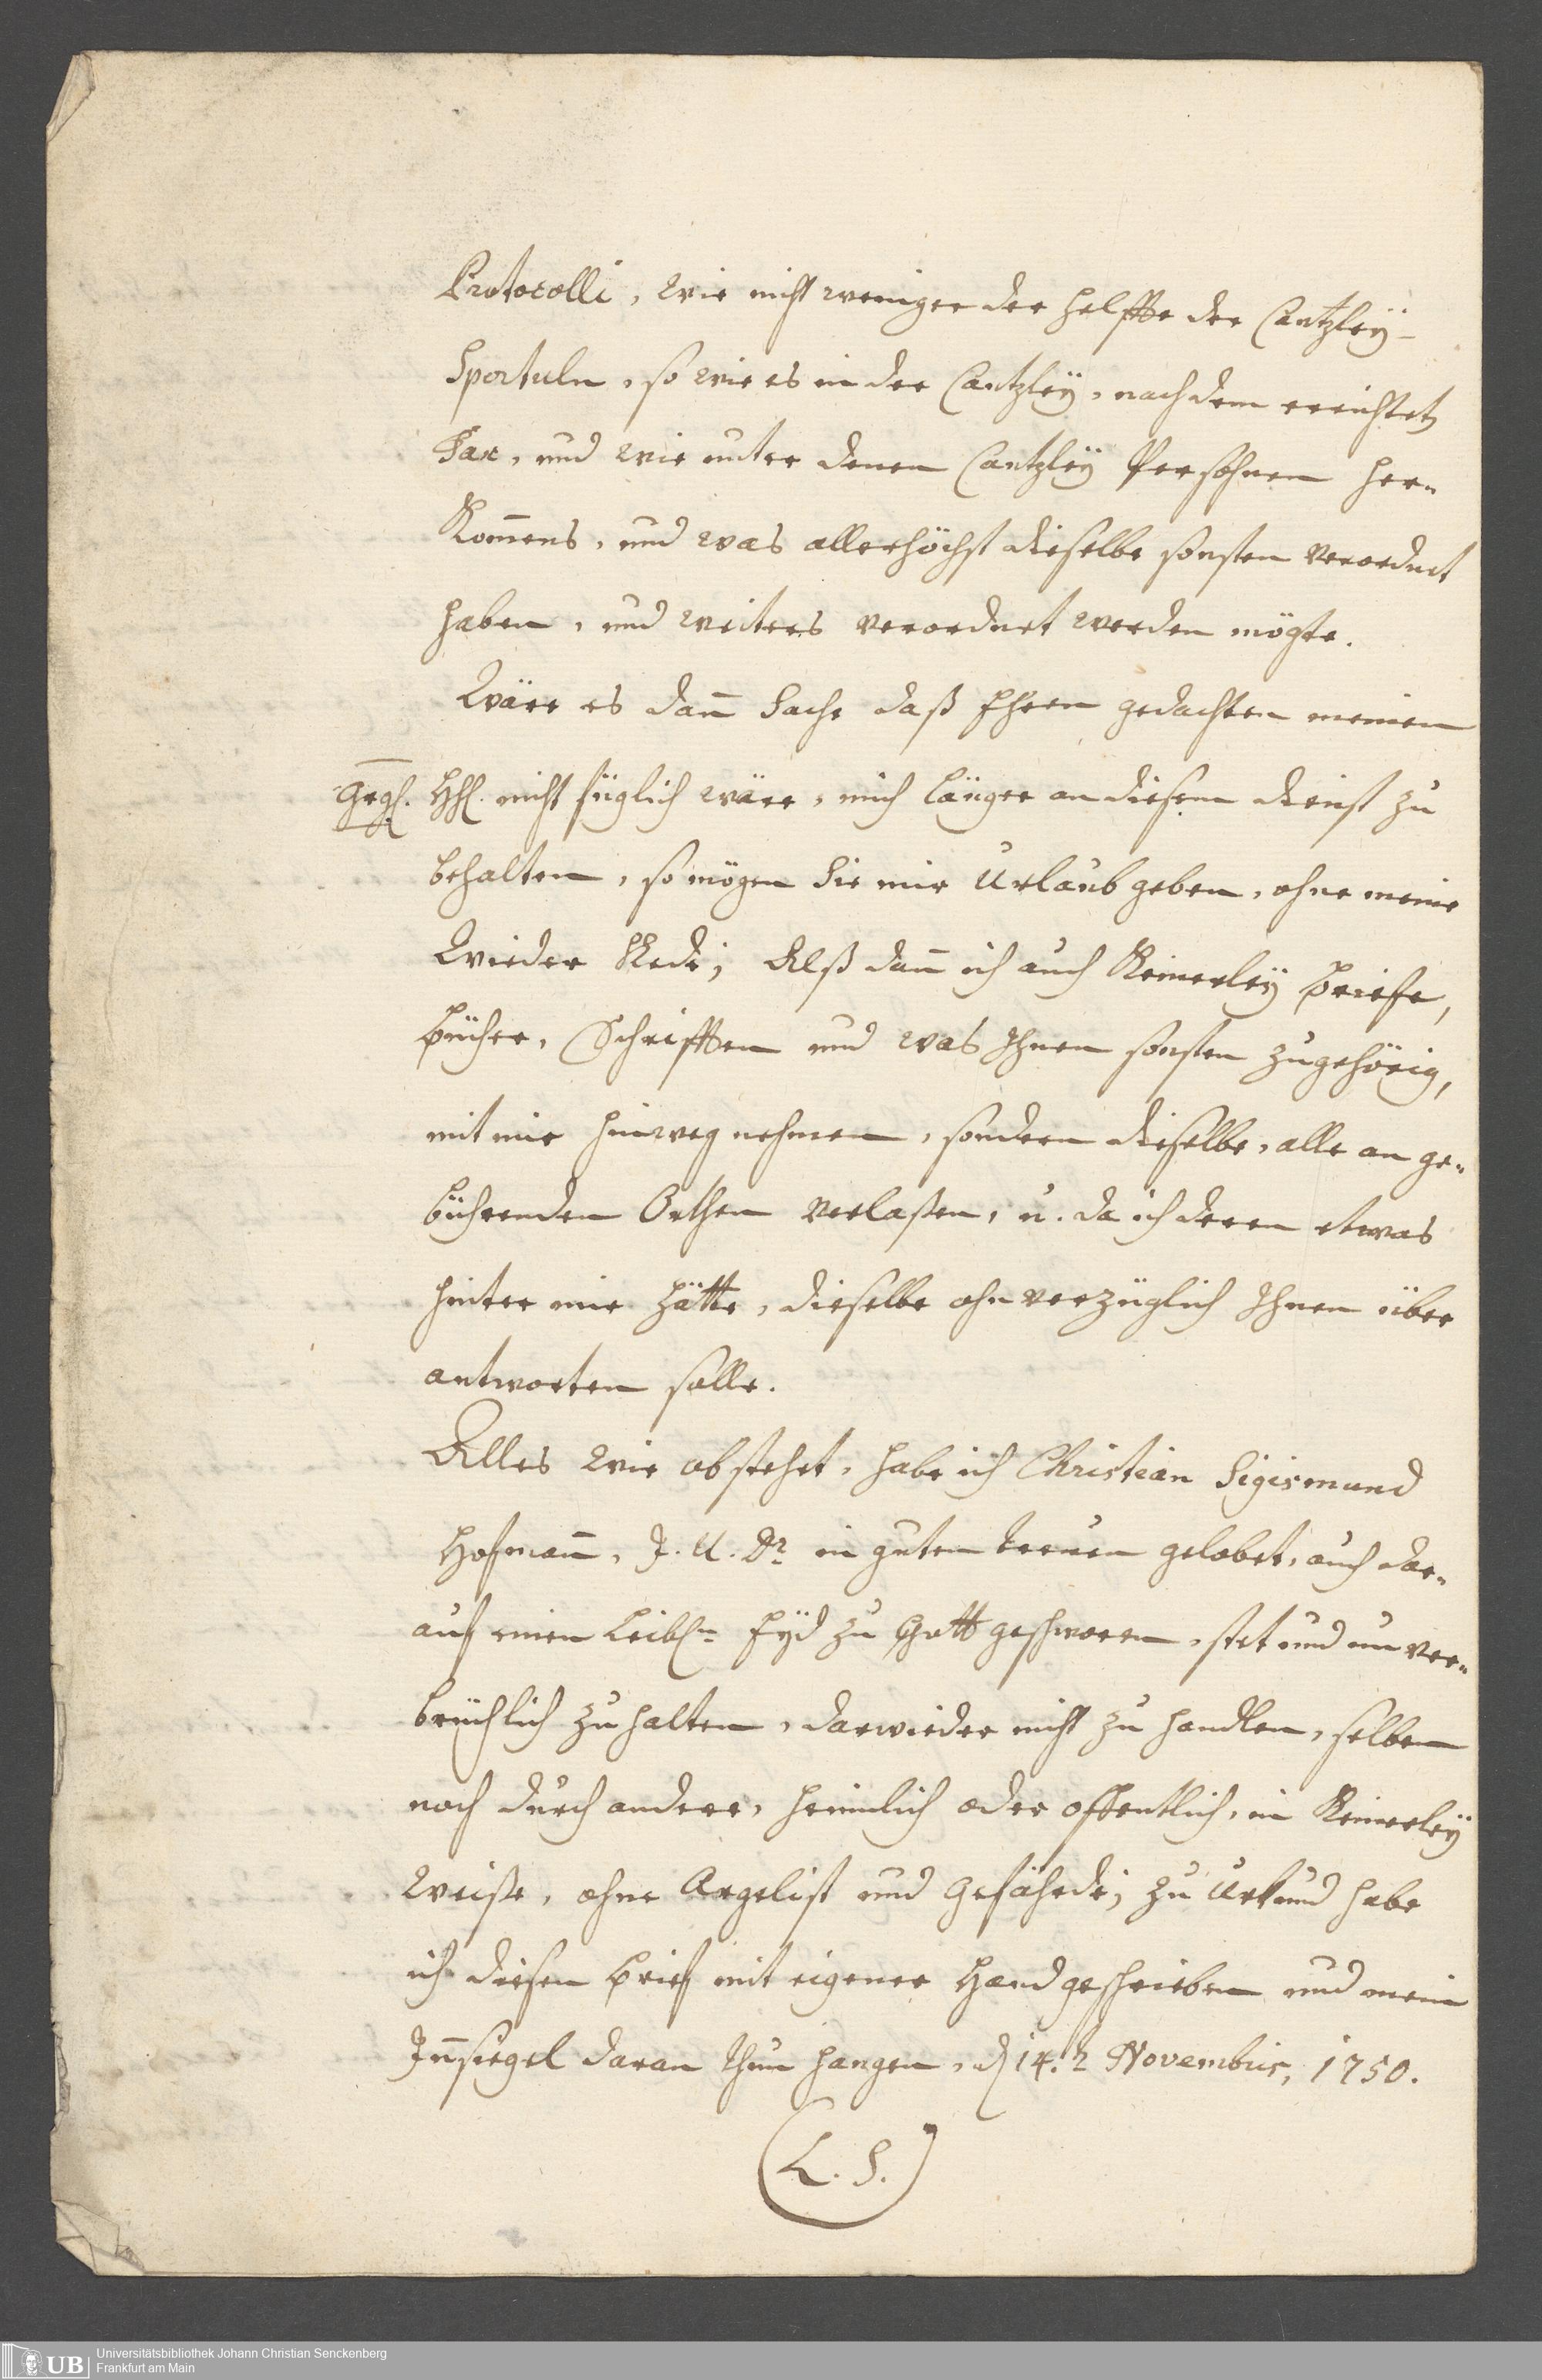 Protocolli, wie nicht weniger der Helffte der Cantzleÿ-
Sportuln, so wie es in der Cantzleÿ, nach dem errichtetē
Tax, und wie unter denen Cantzleÿ Persohnen her-
Kom̄ens, und was allerhöchst dieselbe sonsten verordnet
haben, und weiters verordnet werden mögte.
Wäre es dan̄ Sache daß Ehren gedachten meinen
Grgh. HH. nicht füglich wäre, mich länger an diesem dienst zu
behalten, so mögen Sie mir Urlaub geben, ohne meine
Wieder Rede; Alß dan̄ ich auch Keinerleÿ briefe,
bücher, Schrifften und was Ihnen sonsten zugehörig,
mit mir hinweg nehmen, sondern dieselbe, alle an ge-
bührenden Orthen verlaßen, u. da ich deren etwas
hinter mir hätte, dieselbe ohnverzüglich Ihnen über
antworten solle.
Alles wie obstehet, habe ich Christian Sigismund
Hofman̄, J. U. Dr in guten treuen gelobet, auch dar-
auf einen Leibln Eÿd zu Gott geschworen, stet und unver-
brüchlich zu halten, darwieder nicht zu handlen, selben
noch durch andere, heimlich oder offentlich, in Keinerleÿ
Weiße, ohne Argelist und Gefährde; zu Urkund habe
ich diesen brief mit eigener Hand geschrieben und mein
In̄siegel daran thun hangen, d 14. Novembris, 1750.
(L. S.)
UB Universitätsbibliothek Johann Christian Senckenberg
Frankfurt am Main